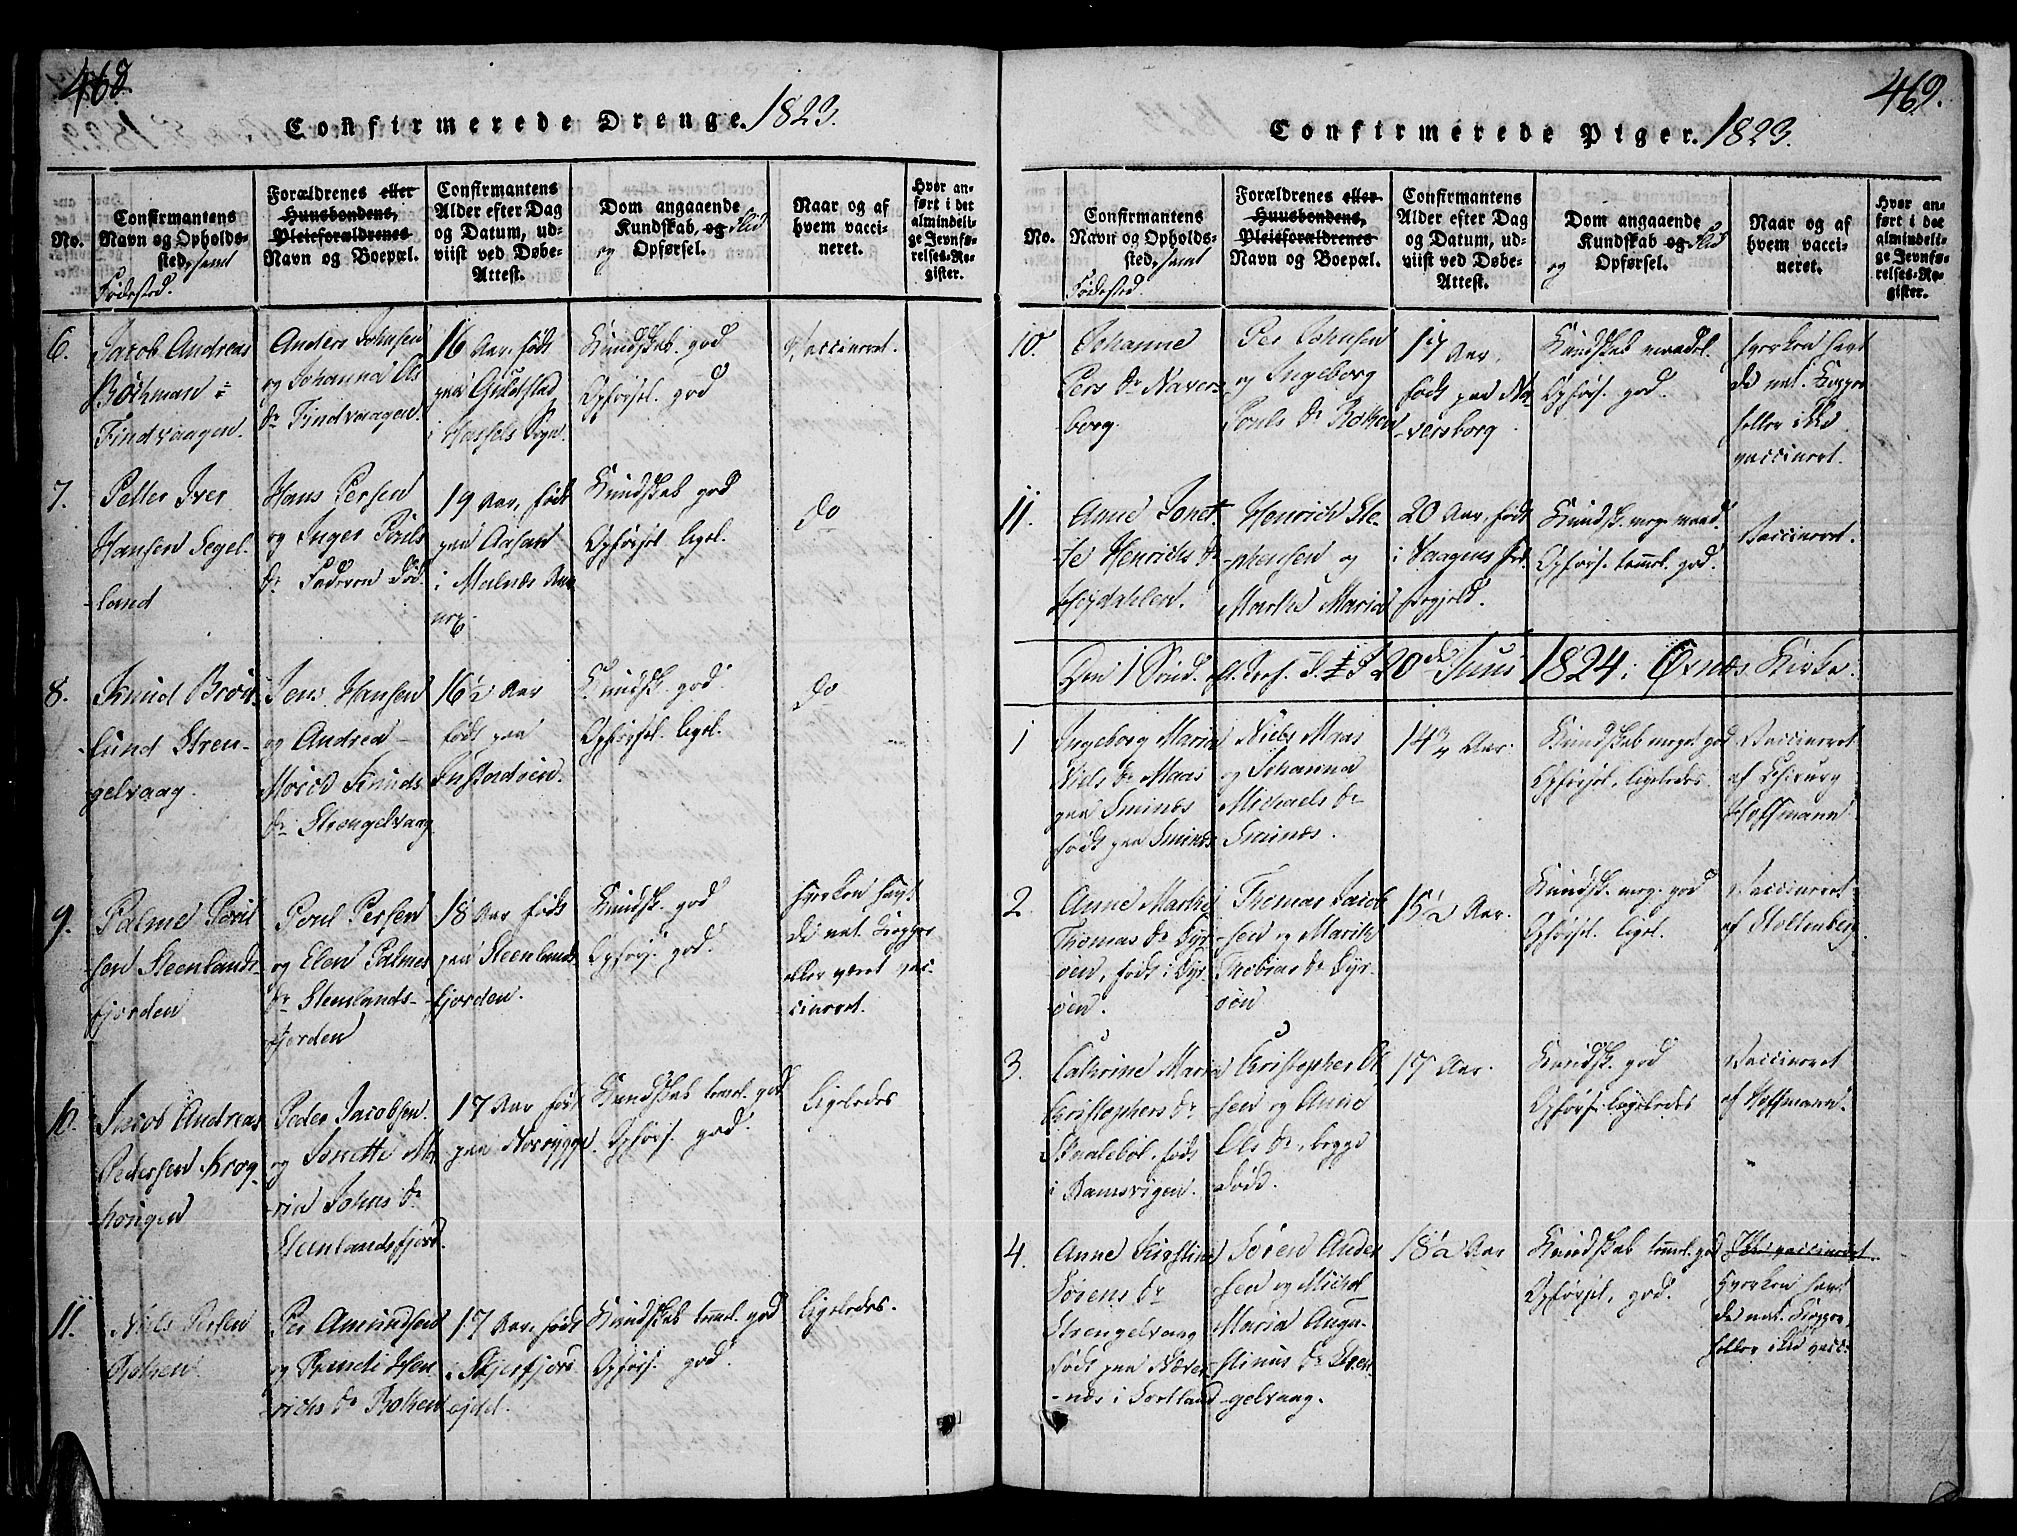 468.
Confirmerede Drenge. 1823.
No.
Confirmantens
Navn og Opholds-
sted, samt
Fødested.
Forældrenes eller
Huusbondens,
Pleieforældrenes
Navn og Boepæl.
Confirmantens
Alder efter Dag
og Datum, ud-
viist ved Døbe-
Attest.
Dom angaaende
Kundskab, og Flid
og Opførsel.
Naar og af
hvem vacci-
neret.
Hvor an-
ført i det
almindeli-
ge Jevnfø-
relses-Re-
gister.
6.
Jacob Andreas
Findvaagen.
Anders Johnsen
og Johanna Ols
Dr Findvaagen.
16 Aar, født
paa Guldstad
i Hassels Sogn.
Kundskab god
Opførsel god
Vaccineret.
7.
Petter Iver
Hansen Segel-
land
Hans Persen
og Inger Pouls
Dr Faderen død.
19 Aar, født
paa Aasan
i Malnæs
Kundskab god
Opførsel ligel.
do
8.
Knud Bröd-
lund Stren-
gelvaag.
Jens Hansen
og Andrea
Knuds
Dr Strengelvaag
16½ Aar
født paa
Kundsk. god.
Opførsel ligel.
do
9.
Palme Poul
sen Steenlands-
fjorden
Poul Persen
og Elen Palmes
Dr Steenlands-
fjorden
18 Aar født
paa Steenlands-
fjorden.
Kundsk. god
Opførs. god.
hverken havt
de nat. Kopper
eller været vac-
cineret.
10.
Jacob Andreas
Pedersen Krog-
Peder Jacobsen
og Jonette Ma
ria Johns Dr
Steenlandsfjord.
17 Aar født
paa
Kundskab temml. god
Opførs. god.
ligeledes
11.
Niels Persen
Roksen.
Per Amundsen
og Randi Hen
richs Dr Roksen
17 Aar, født
i Skjerfjord
Kundskab temml. god
Opførs. god.
ligeledes.
469.
Confirmerede Piger. 1823.
No.
Confirmantens
Navn og Opholds-
sted, samt
Fødested.
Forældrenes eller
Huusbondens,
Pleieforældrenes
Navn og Boepæl.
Confirmantens
Alder efter Dag
og Datum, ud-
viist ved Døbe-
Attest.
Dom angaaende
Kundskab og Flid
og Opførsel.
Naar og af
hvem vacci-
neret.
Hvor an-
ført i det
almindeli-
ge Jevnfø-
relses-Re-
gister.
10.
Johanne
Pers Dr Navers-
borg.
Per Johnsen
og Ingeborg
Pouls Dr Roksen
17 Aar,
født paa Na-
versborg
Kundskab maadel.
Opførs. god.
hverken havt
de nat. Kopper
heller ikke
vaccineret.
11.
Anne Jonet-
te Henrichs Dr
Højdahlen.
Henrich Ste-
phensen og
Marthe Maria
20 Aar, født
i Vaagens Præ-
stegjeld.
Kundsk. meg. maad.
Opførs. temml. god.
Vaccineret.
Den 1 Sönd. 20de Juni 1824 i Øxnæs Kirke.
1
Ingeborg Maria
Niels Dr Maas
paa Smines
født paa Smines
Niels Maas
og Johanna
Michaels Dr
Smines.
14¾ Aar.
Kundskab meget god
Opførsel, ligeledes
Vaccineret
af Chirurg
Hoffmann.
2.
Anne Marthe
Thomas Dr Dyr-
øen, født i Dyr-
øen.
Thomas Jacob
sen og Marith
Thobias Dr Dyr-
øen
15½ Aar.
Kundsk. meg. god
Opførsel ligel.
Vaccineret
af Stoltenberg.
3.
Cathrine Maria
Christophers Dr
Skalebøl, født
i Ramsvigen.
Christopher Ol
sen og Anne
Ols Dr, begge
døde.
17 Aar.
Kundsk. god
Opførs. ligeledes
Vaccineret
af Hoffmann.
4.
Anne Kirstine
Sørens Dr
Strengelvaag
født paa
næs i Sortland
Søren Ander
sen og Michel
Maria Augu-
stinus Dr Stren
gelvaag.
18½ Aar
Kundskab temml. god
Opførsel, god.
Ikke vaccineret
Hverken havt
de nat. Kopper,
heller ikke vacc.